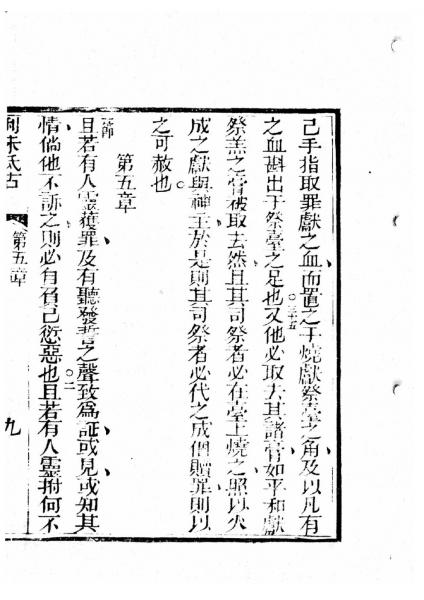 己手指取罪獻之血而置之于燒獻祭臺之角及以凡有
之血斟出于祭臺之足也○三十五又他必取去其諸膏如平和獻
祭羔之膏被取去然且其司祭者必在臺上燒之照以火
成之獻與神主於是則其司祭者必代之成個贖罪則以
之可赦也
第五章
節且若有人靈獲罪及有聽發誓之聲致爲証或見或知其
情倘他不訴之則必自負己愆惡也○二且若有人靈拊何不
利未氏古 第五章 九